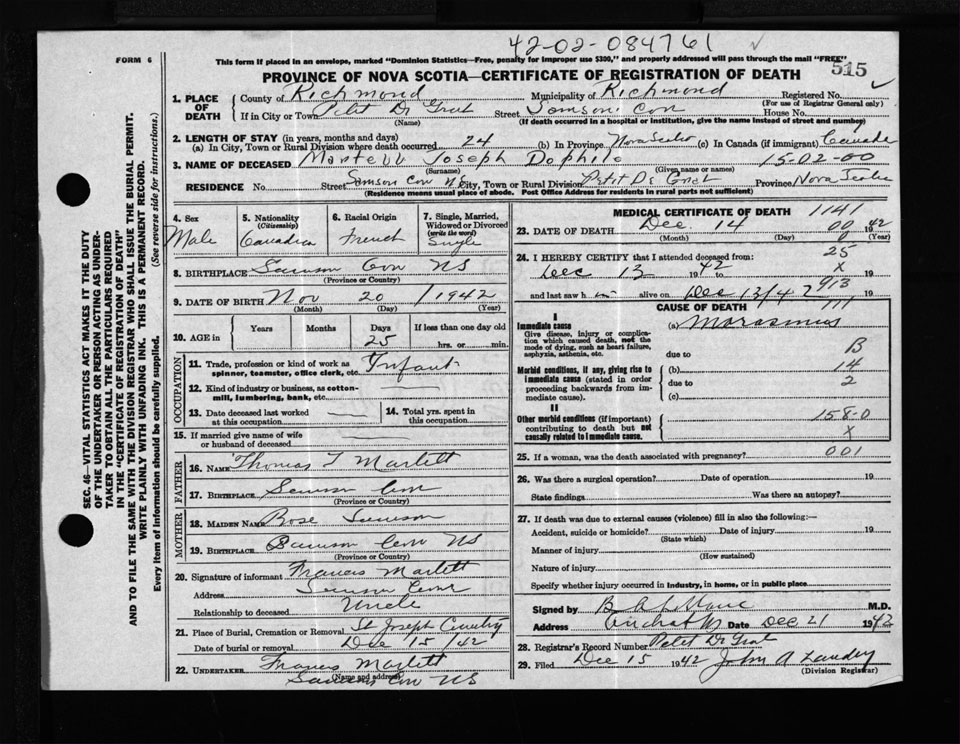 42-02-084761
FORM 6
This form if placed in an envelope, marked "Dominion Statistics—Free, penalty for improper use $300," and properly addressed will pass through the mail "FREE"
515
PROVINCE OF NOVA SCOTIA—CERTIFICATE OF REGISTRATION OF DEATH
1. PLACE OF DEATH County of Richmond Municipality of Richmond Registered No.
(For use of Registrar General only)
If in City or Town Petit De Grat Street Samson Cov House No.
(Name) (If death occurred in a hospital or institution, give the name instead of street and number)
2. LENGTH OF STAY (in years, months and days)
(a) In City, Town or Rural Division where death occurred 24 (b) In Province Nova Scotia (c) In Canada (if immigrant) Canada
3. NAME OF DECEASED Martell Joseph Dophile 15-02-00
(Surname) (Given name or names)
RESIDENCE No. Street Samson Cov NS City, Town or Rural Division Petit De Grat Province Nova Scotia
(Residence means usual place of abode. Post Office Address for residents in rural parts not sufficient)
4. Sex
Male
5. Nationality
(Citizenship)
Canadian
6. Racial Origin
French
7. Single, Married, Widowed or Divorced
(write the word)
Single
8. BIRTHPLACE Samson Cov NS
(Province or Country)
9. DATE OF BIRTH Nov 20 / 1942
(Month) (Day) (Year)
10. AGE in Years Months Days If less than one day old
25 hrs. or min.
OCCUPATION
11. Trade, profession or kind of work as spinner, teamster, office clerk, etc. Infant
12. Kind of industry or business, as cotton-mill, lumbering, bank, etc.
13. Date deceased last worked at this occupation
14. Total yrs. spent in this occupation
15. If married give name of wife or husband of deceased
FATHER
16. NAME Thomas T Martett
17. BIRTHPLACE Samson Cov
(Province or Country)
MOTHER
18. MAIDEN NAME Rose Samson
19. BIRTHPLACE Samson Cov NS
(Province or Country)
20. Signature of informant Francis Martett
Address Samson Cov
Relationship to deceased Uncle
21. Place of Burial, Cremation or Removal St Joseph Cemetry
Date of burial or removal Dec 15 / 42
22. UNDERTAKER Francis Martett
(Name and address)
Samson Cov NS
MEDICAL CERTIFICATE OF DEATH 1141
23. DATE OF DEATH Dec. 14 00 1942
(Month) (Day) (Year)
24. I HEREBY CERTIFY that I attended deceased from: 25
Dec 13 1942 to X 19
and last saw h im alive on Dec 13/42 913 19
CAUSE OF DEATH 1111
I
Immediate cause
Give disease, injury or complication which caused death, not the mode of dying, such as heart failure, asphyxia, asthenia, etc.
(a) Marasmus
due to B
Morbid conditions, if any, giving rise to immediate cause (stated in order proceeding backwards from immediate cause).
(b) 14
due to 2
(c)
II
Other morbid conditions (if important) contributing to death but not causally related to immediate cause.
158-0
X
25. If a woman, was the death associated with pregnancy? 001
26. Was there a surgical operation? Date of operation 19
State findings Was there an autopsy?
27. If death was due to external causes (violence) fill in also the following:—
Accident, suicide or homicide? Date of injury 19
(State which)
Manner of injury
(How sustained)
Nature of injury
Specify whether injury occurred in industry, in home, or in public place
Signed by M.D.
Address Arichat NS Date Dec 21 1942
28. Registrar's Record Number Petit De Grat
29. Filed Dec 15 1942 John A Landry
(Division Registrar)
SEC. 46—VITAL STATISTICS ACT MAKES IT THE DUTY
OF THE UNDERTAKER OR PERSON ACTING AS UNDERTAKER TO OBTAIN ALL THE PARTICULARS REQUIRED
IN THE "CERTIFICATE OF REGISTRATION OF DEATH"
AND TO FILE THE SAME WITH THE DIVISION REGISTRAR WHO SHALL ISSUE THE BURIAL PERMIT.
WRITE PLAINLY WITH UNFADING INK. THIS IS A PERMANENT RECORD.
Every item of information should be carefully supplied. (See reverse side for instructions.)